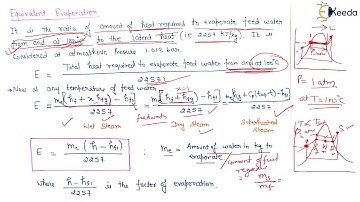 Equivalent Evaporation
It is the ratio of amount of heat required to evaporate feed water
from and at 100°C to the latent heat (i.e. 2257 kJ/kg). It is
Considered at atmospheric pressure 1.013 bar.
E = Total heat required to evaporate feed water from and at 100°C
2257
→ Now at any temperature of feed water
E = me[(hf + x hfg) - hf1]
2257
Wet Steam
Dry Steam
Superheated steam
E = me (h - hf1)
2257
me = Amount of water in kg to
evaporate / amount of fuel
where h - hf1
2257
is the factor of evaporation.
Keeda
P = 1 atm
at T = 100°C